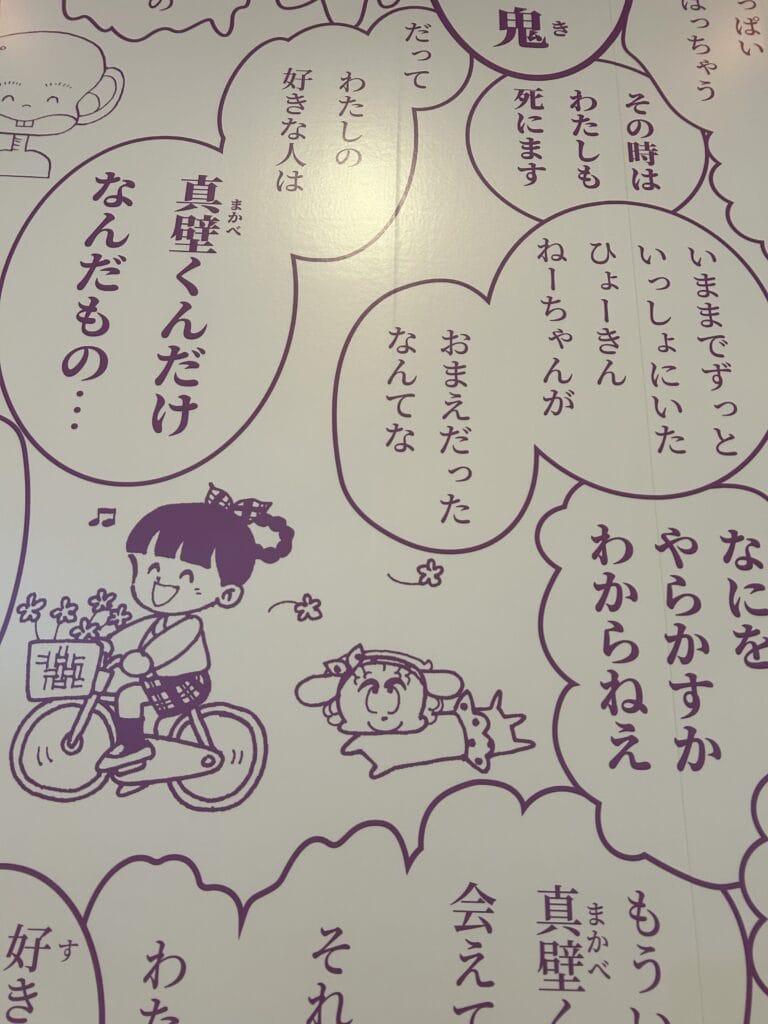 っぱい
はっちゃう
鬼
き
その時は
わたしも
死にます
だって
わたしの
好きな人は
真壁くんだけ
まかべ
なんだもの…
いままでずっと
いっしょにいた
ひょーきん
ねーちゃんが
おまえだった
なんてな
なにを
やらかすか
わからねえ
もうい
真壁く
まかべ
会えて
それ
わた
好き
す